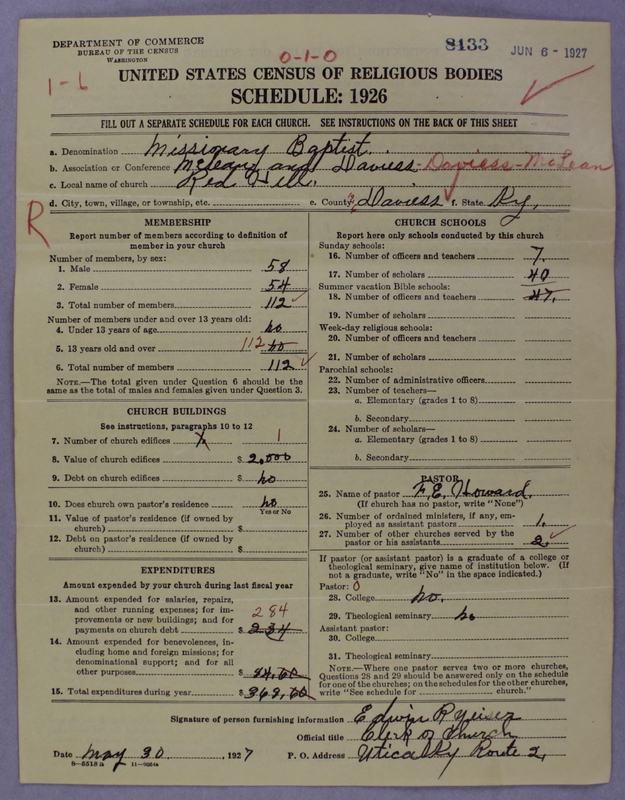 DEPARTMENT OF COMMERCE
BUREAU OF THE CENSUS
WASHINGTON
0-1-0
8133
JUN 6 - 1927
1-6
UNITED STATES CENSUS OF RELIGIOUS BODIES
SCHEDULE: 1926
FILL OUT A SEPARATE SCHEDULE FOR EACH CHURCH. SEE INSTRUCTIONS ON THE BACK OF THIS SHEET
a. Denomination Missionary Baptist.
b. Association or Conference McLean and Daviess - Daviess-McLean
c. Local name of church Red Hill.
d. City, town, village, or township, etc. e. County Daviess f. State Ky,
R
MEMBERSHIP
Report number of members according to definition of
member in your church
Number of members, by sex:
1. Male 58
2. Female 54
3. Total number of members 112
Number of members under and over 13 years old:
4. Under 13 years of age no
5. 13 years old and over 112 no
6. Total number of members 112
NOTE.—The total given under Question 6 should be the
same as the total of males and females given under Question 3.
CHURCH BUILDINGS
See instructions, paragraphs 10 to 12
7. Number of church edifices 1
8. Value of church edifices $ 2,000
9. Debt on church edifices $ no
10. Does church own pastor's residence no
Yes or No
11. Value of pastor's residence (if owned by
church) $
12. Debt on pastor's residence (if owned by
church) $
EXPENDITURES
Amount expended by your church during last fiscal year
13. Amount expended for salaries, repairs,
and other running expenses; for im-
provements or new buildings; and for
payments on church debt $ 284
234
14. Amount expended for benevolences, in-
cluding home and foreign missions; for
denominational support; and for all
other purposes $ 84,60
15. Total expenditures during year $ 368,60
CHURCH SCHOOLS
Report here only schools conducted by this church
Sunday schools:
16. Number of officers and teachers 7,
17. Number of scholars 40
Summer vacation Bible schools:
18. Number of officers and teachers 47,
19. Number of scholars
Week-day religious schools:
20. Number of officers and teachers
21. Number of scholars
Parochial schools:
22. Number of administrative officers
23. Number of teachers—
a. Elementary (grades 1 to 8)
b. Secondary
24. Number of scholars—
a. Elementary (grades 1 to 8)
b. Secondary
PASTOR
25. Name of pastor F. E. Howard.
(If church has no pastor, write "None")
26. Number of ordained ministers, if any, em-
ployed as assistant pastors 1,
27. Number of other churches served by the
pastor or his assistants 2,
If pastor (or assistant pastor) is a graduate of a college or
theological seminary, give name of institution below. (If
not a graduate, write "No" in the space indicated.)
Pastor: 0
28. College no.
29. Theological seminary no
Assistant pastor:
30. College
31. Theological seminary
NOTE.—Where one pastor serves two or more churches,
Questions 28 and 29 should be answered only on the schedule
for one of the churches; on the schedules for the other churches,
write "See schedule for church."
Signature of person furnishing information Edwin R Yeiser
Official title Clerk of Church
Date May 30, 1927 P. O. Address Utica Ky Route 2,
8—5518 a